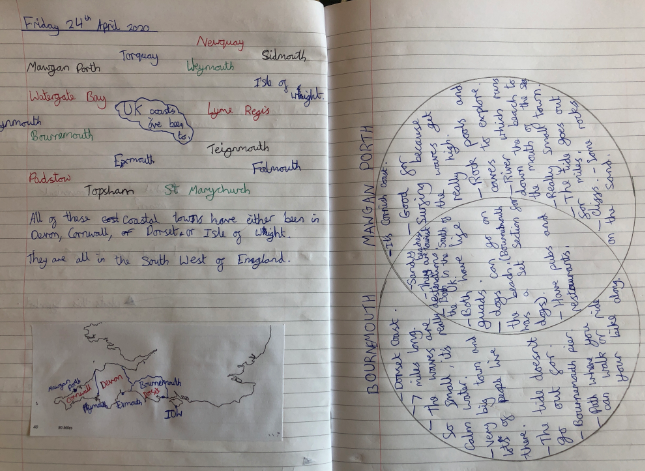 Friday 24th April 2020
Newquay
Torquay
Sidmouth
Mawgan Porth
Weymouth
Isle of Wight
Watergate Bay
UK coasts
I've been
to
Lyme Regis
Bournemouth
Teignmouth
Exmouth
Falmouth
Padstow
Topsham
St Marychurch
All of these coastal towns have either been in
Devon, Cornwall, or Dorset or Isle of Wight.
They are all in the South West of England.
Mawgan Porth
Cornwall
Devon
Bournemouth
Plymouth
Exmouth
IOW
BOURNEMOUTH
- Dorset Coast.
- 7 miles long.
- The waves are
so small, it's
calm water.
- Very big town and
lots of people live
there.
- The tide doesn't
go out far.
- Bournemouth pier
- Path where you
can walk or ride
your bike along
- Sandy
- Both in the South of
the UK.
- Both have life
guards.
- dogs can go on
the beach. (Bournemouth
has a set section for
dogs)
- Have pubs and
restaurants.
MAWGAN PORTH
- Its Cornish coast.
- Good for
surfing because
the waves get
really high
- Rock pools and
caves to explore
- River which runs
down the beach to
the mouth of the sea
- Really small town
- The tide goes out
for miles
- Cliffs - some rocks
on the sand.